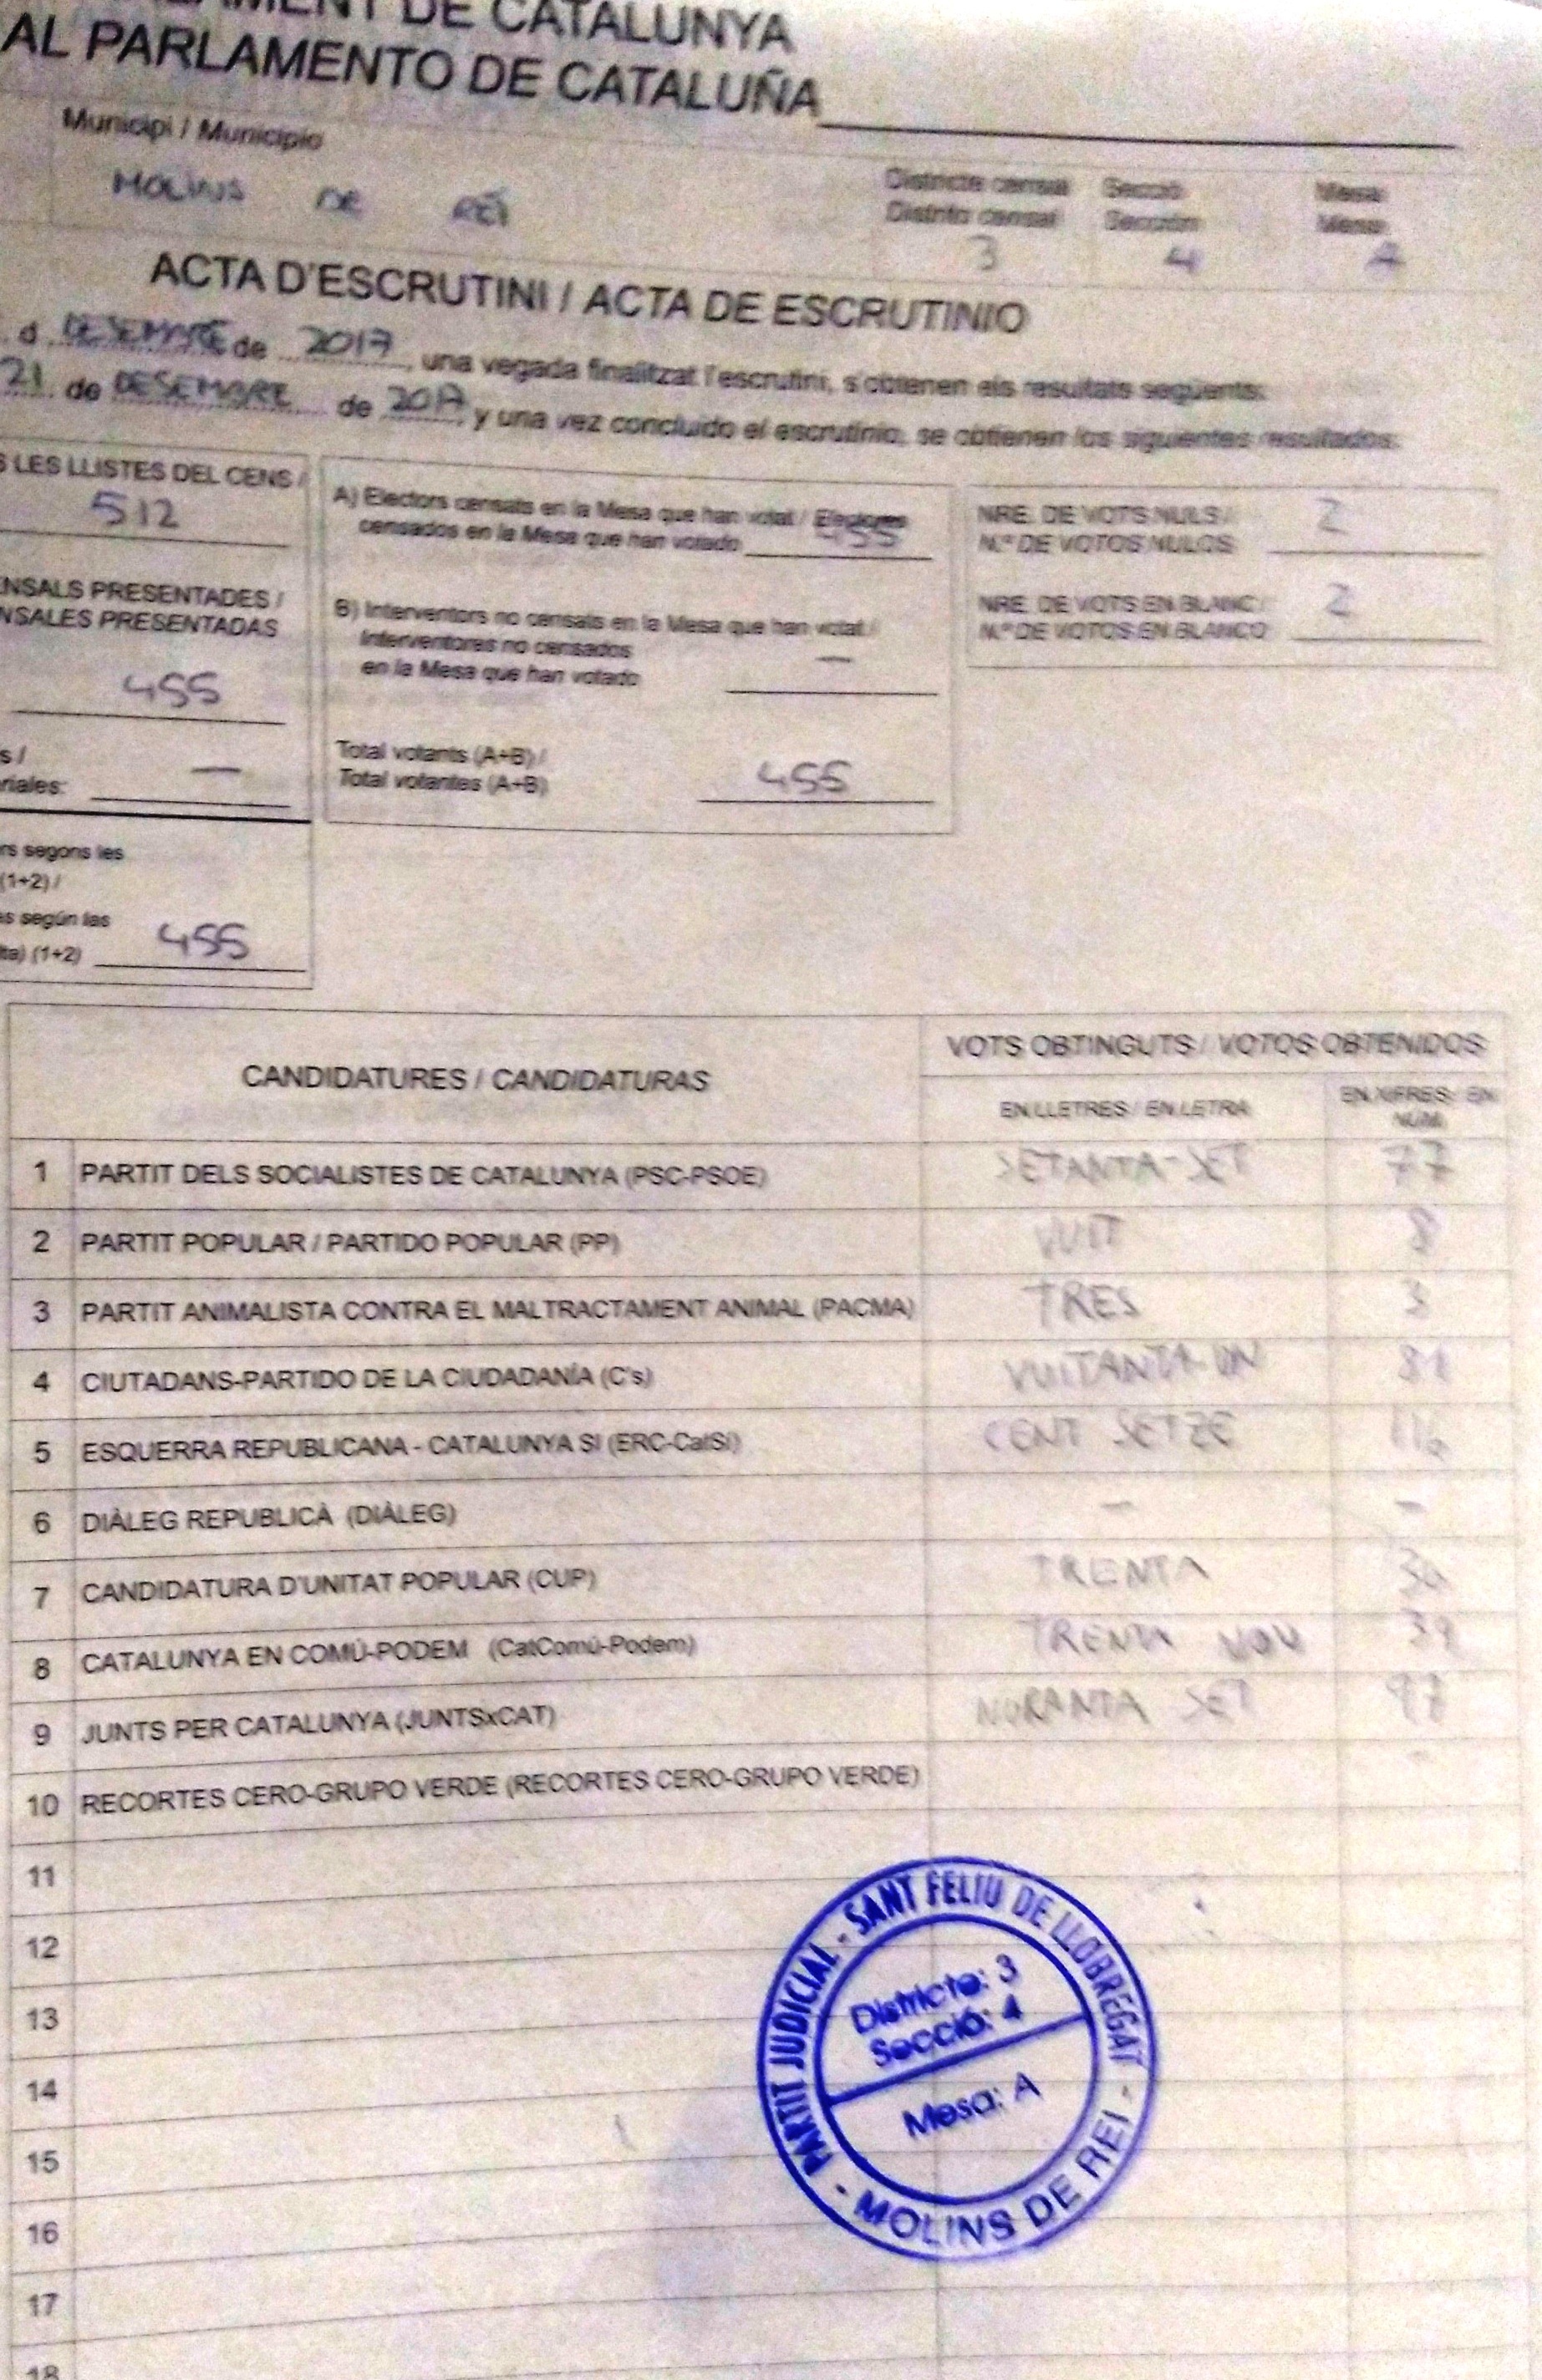 PARLAMENT DE CATALUNYA
AL PARLAMENTO DE CATALUÑA
Municipi / Municipio
MOLINS DE REI
Districte censal Secció Mesa
Distrito censal Sección Mesa
3 4 A
ACTA D'ESCRUTINI / ACTA DE ESCRUTINIO
d DESEMBRE de 2017, una vegada finalitzat l'escrutini, s'obtenen els resultats següents:
21 de DESEMBRE de 2017, y una vez concluido el escrutinio, se obtienen los siguientes resultados:
S LES LLISTES DEL CENS /
512
ENSALS PRESENTADES /
NSALES PRESENTADAS
455
s /
riales: —
rs segons les
(1+2) /
as según las
lta) (1+2) 455
A) Electors censats en la Mesa que han votat / Electores
censados en la Mesa que han votado 455
B) Interventors no censats en la Mesa que han votat /
Interventores no censados
en la Mesa que han votado —
Total votants (A+B) /
Total votantes (A+B) 455
NRE. DE VOTS NULS /
N.º DE VOTOS NULOS 2
NRE. DE VOTS EN BLANC /
N.º DE VOTOS EN BLANCO 2
CANDIDATURES / CANDIDATURAS
VOTS OBTINGUTS / VOTOS OBTENIDOS
EN LLETRES / EN LETRA
EN XIFRES / EN
NÚM.
1 PARTIT DELS SOCIALISTES DE CATALUNYA (PSC-PSOE) SETANTA-SET 77
2 PARTIT POPULAR / PARTIDO POPULAR (PP) VUIT 8
3 PARTIT ANIMALISTA CONTRA EL MALTRACTAMENT ANIMAL (PACMA) TRES 3
4 CIUTADANS-PARTIDO DE LA CIUDADANÍA (C's) VUITANTA-UN 81
5 ESQUERRA REPUBLICANA - CATALUNYA SI (ERC-CatSí) CENT SETZE 116
6 DIÀLEG REPUBLICÀ (DIÀLEG) — —
7 CANDIDATURA D'UNITAT POPULAR (CUP) TRENTA 30
8 CATALUNYA EN COMÚ-PODEM (CatComú-Podem) TRENTA NOU 39
9 JUNTS PER CATALUNYA (JUNTSxCAT) NORANTA SET 97
10 RECORTES CERO-GRUPO VERDE (RECORTES CERO-GRUPO VERDE) -
11
12
13
14
15
16
17
18
PARTIT JUDICIAL - SANT FELIU DE LLOBREGAT -
Districte: 3
Secció: 4
Mesa: A
- MOLINS DE REI -